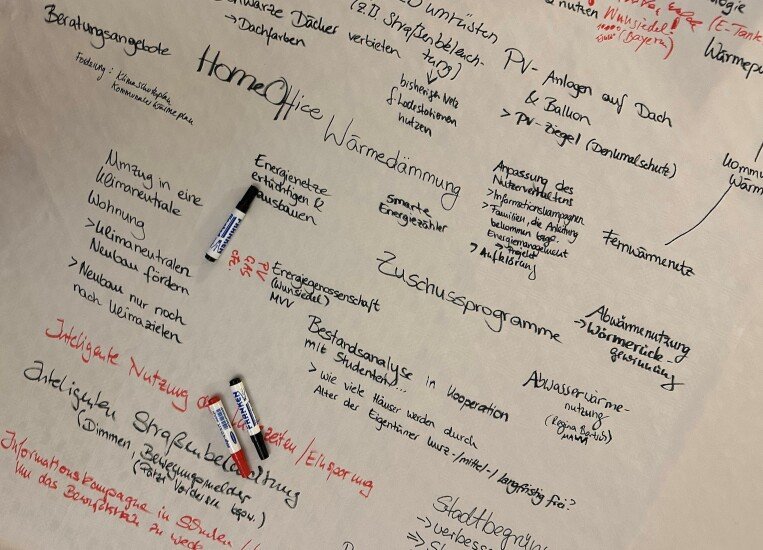 Beratungsangebote
Förderung: Klimaschutzplan
Kommunaler Wärmeplan
Dächer verbieten
→ Dachfarben
HomeOffice
umrüsten
(z.B. Straßenbeleuch-
tung)
bisherigen Netz
f. Ladestationen
nutzen
nutzen
Wunsiedel!
(Bayern)
(E-Tank
PV-Anlagen auf Dach
& Balkon
> PV-Ziegel (Denkmalschutz)
Wärmedämmung
Umzug in eine
klimaneutrale
Wohnung
> klimaneutralen
Neubau fördern
> Neubau nur noch
nach Klimazielen
Energienetze
ertüchtigen &
ausbauen
smarte
Energiezähler
Anpassung des
Nutzerverhaltens
> Informationskampagnen
> Familien, die Anleitung
bekommen bzgl.
Energiemanagement
→ Projekt
> Aufklärung
Fernwärmenetz
PV
GAS
etc.
Energiegenossenschaft
(Wunsiedel)
MVV
Zuschussprogramme
Abwärmenutzung
→ Wärmerück-
gewinnung
Bestandsanalyse in Kooperation
mit Studenten...
> wie viele Häuser werden durch
Alter der Eigentümer kurz-/mittel-/langfristig frei?
Abwasserwärme-
nutzung
Inteligente Nutzung
zeiten/Einsparung
Inteligenten Straßenbeleuchtung
(Dimmen, Bewegungsmelder
bzw.)
Informationskampagne in
um das Bewusstsein zu
Stadtbegrün
→ verbess